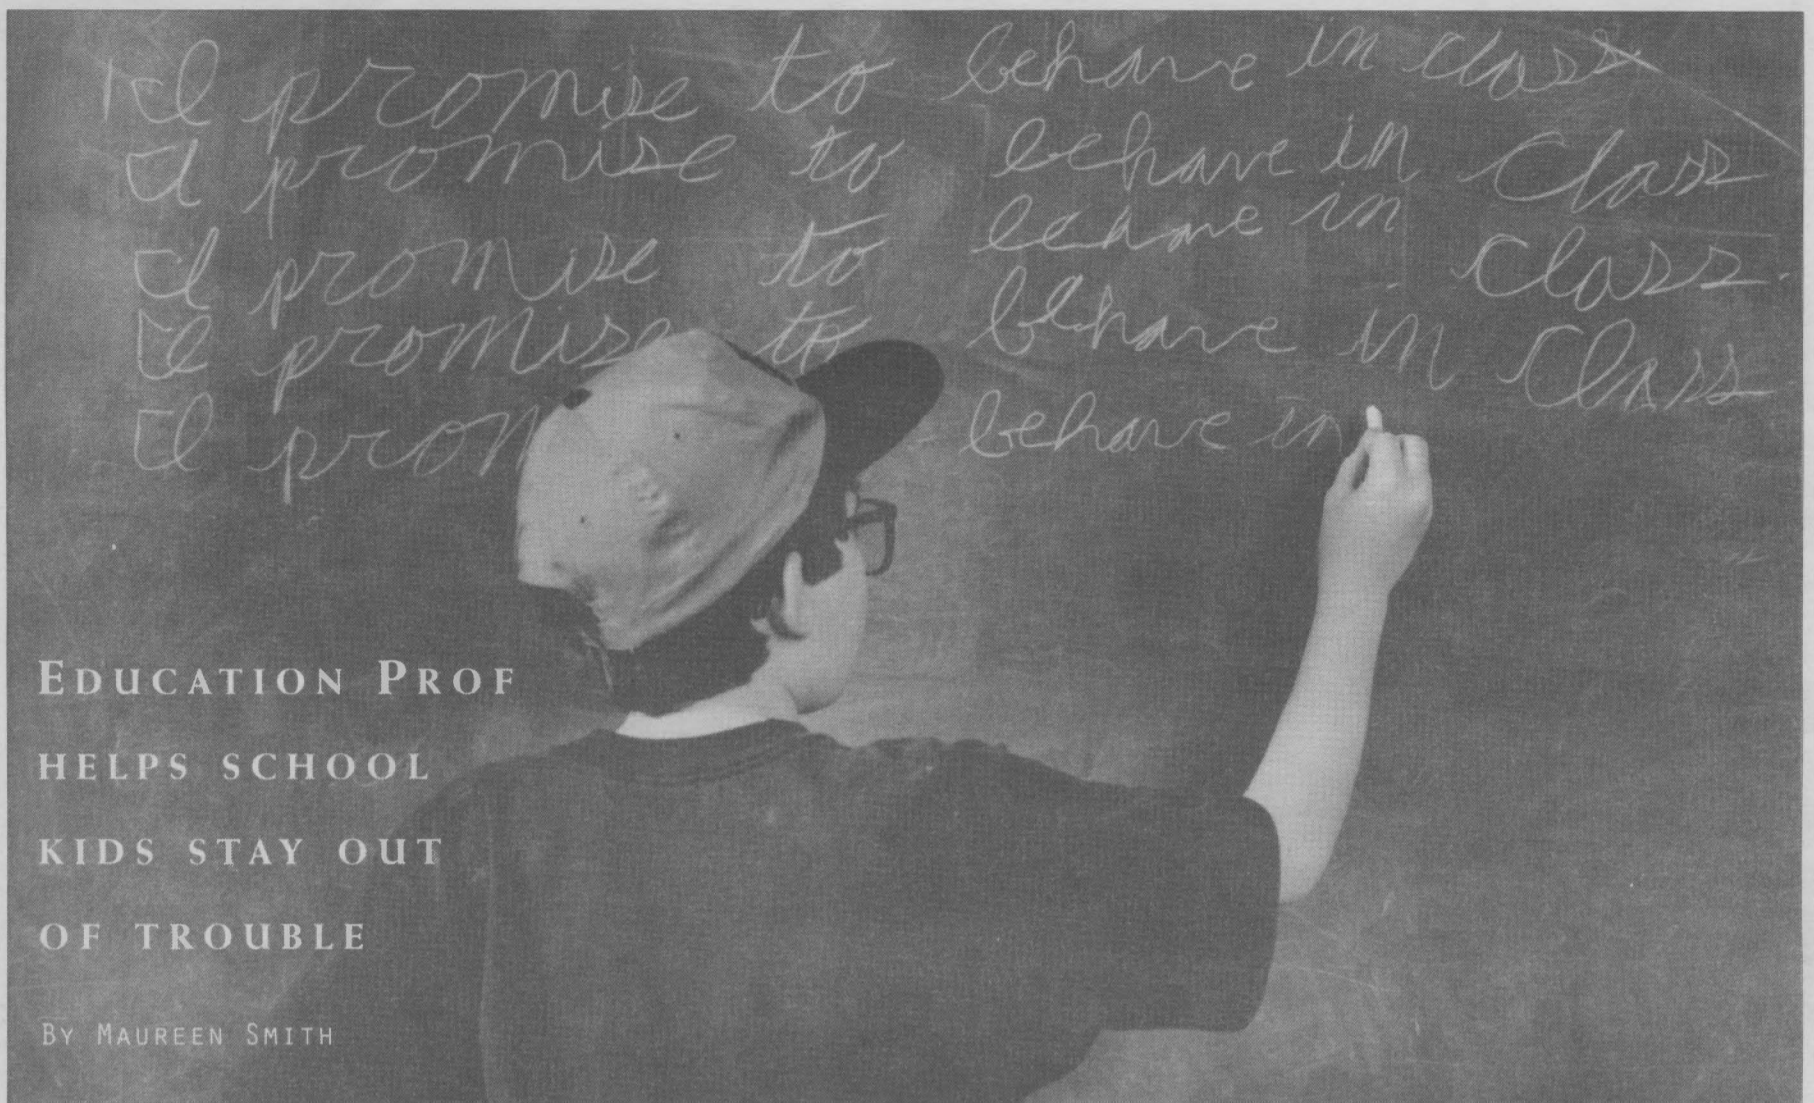 I promise to behave in class
I promise to behave in Class
I promise to behave in Class.
I promise to behave in Class
I prom behave in
EDUCATION PROF
HELPS SCHOOL
KIDS STAY OUT
OF TROUBLE
BY MAUREEN SMITH